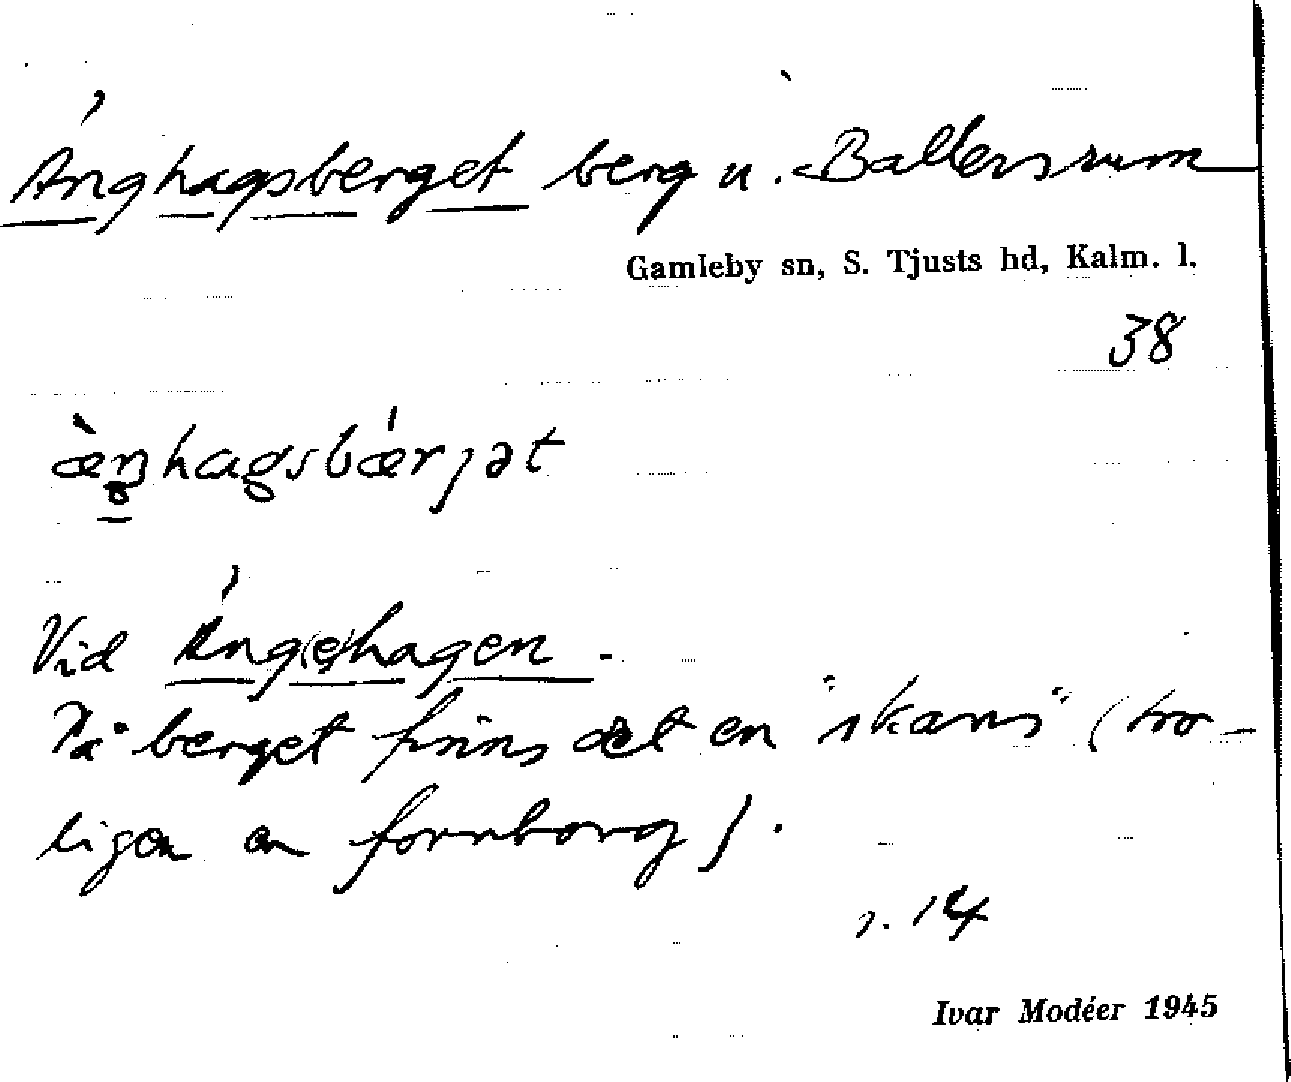 Änghagsberget berg u. Ballersrum
Gamleby sn, S. Tjusts hd, Kalm. l.
38
æ̀ŋhagsbǽrjət
Vid Äng(e)hagen.
På berget finns det en "skans" (tro-
ligen en fornborg).
s. 14
Ivar Modéer 1945